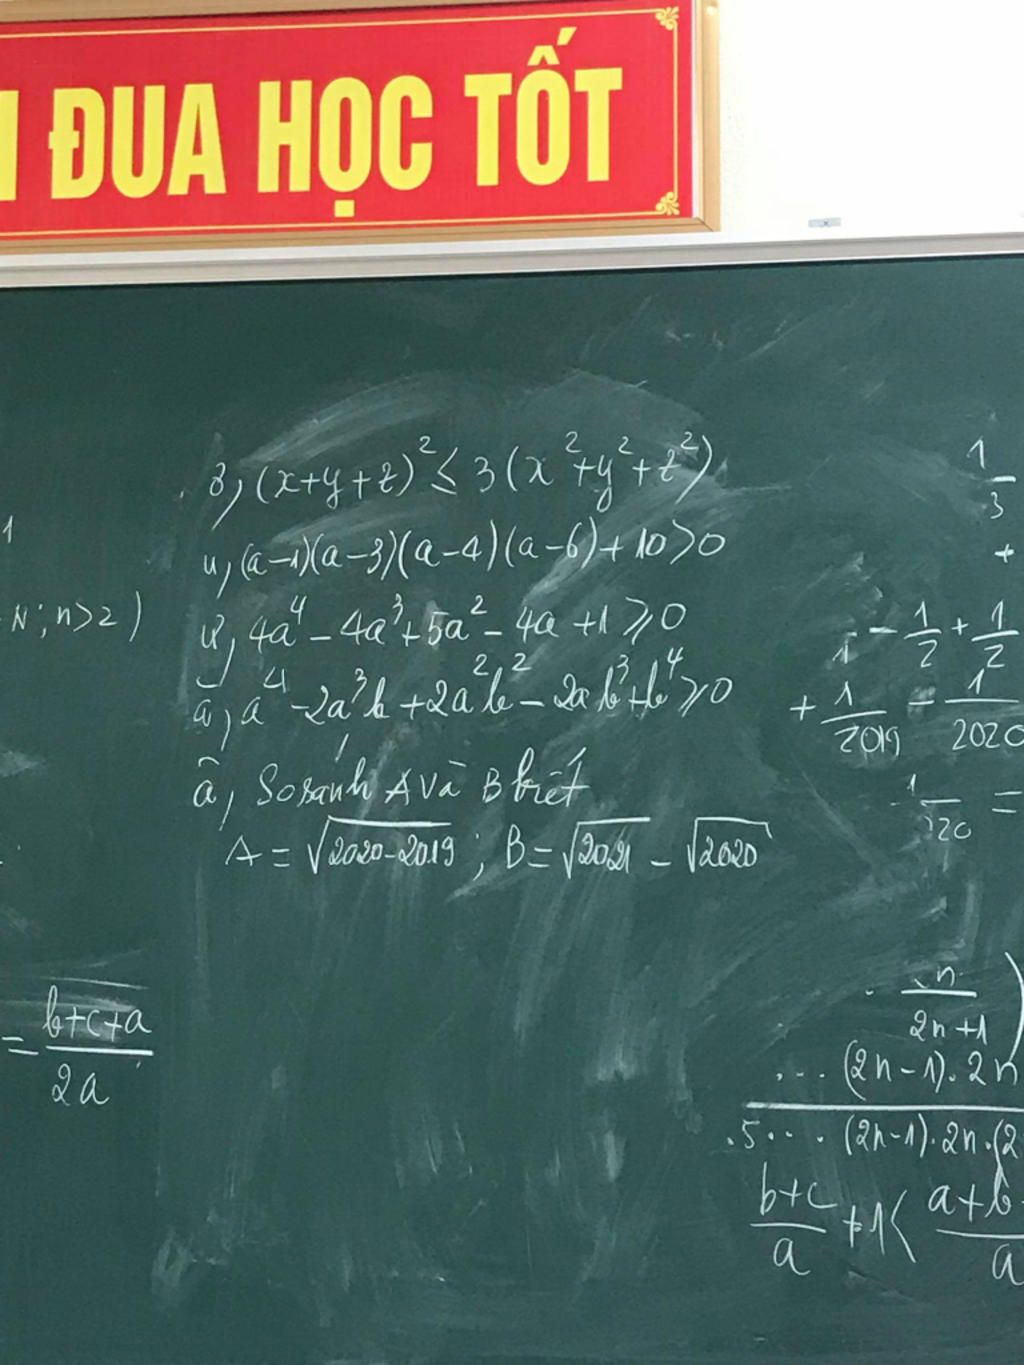 ĐUA HỌC TỐT
3, (x+y+z)² ≤ 3(x²+y²+z²)
u, (a-1)(a-3)(a-4)(a-6)+10>0
ư, 4a⁴ - 4a³ + 5a² - 4a + 1 ⩾ 0
a⁴ - 2a³b + 2a²b² - 2ab³ + b⁴ ⩾ 0
So sánh A và B biết
A = √(2020-2019) ; B = √2021 - √2020
1
N; n>2)
= (b+c+a)/(2a)
1/3
+
1 - 1/2 + 1/2
+ 1/2019 - 1/2020
=
n/(2n+1) )
... (2n-1).2n
.5... (2n-1).2n.(2
(b+c)/a + 1 < (a+b
a